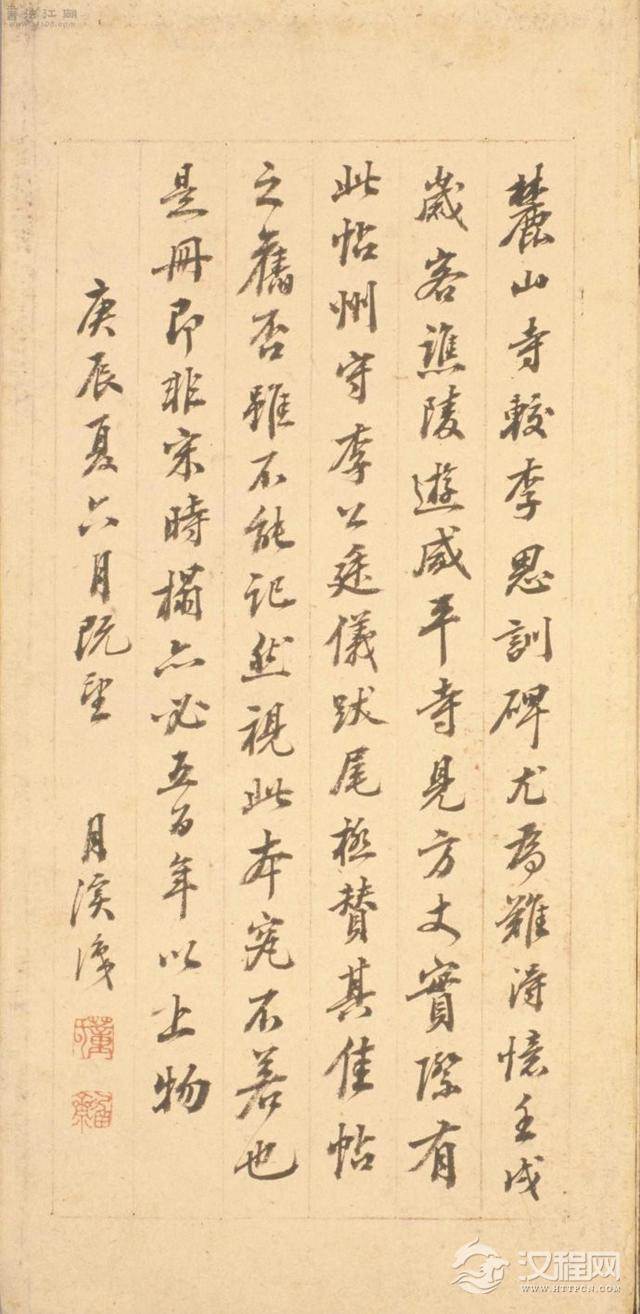 麓山寺較李思訓碑尤為難得憶壬戌
歲客譙陵遊咸平寺見方丈實際有
此帖州守李公廷儀跋尾極贊其佳帖
之舊否雖不能記然視此本究不若也
是冊即非宋時榻亦必五百年以上物
庚辰夏六月既望 月溪
汉程网
WWW.HTTPCN.COM